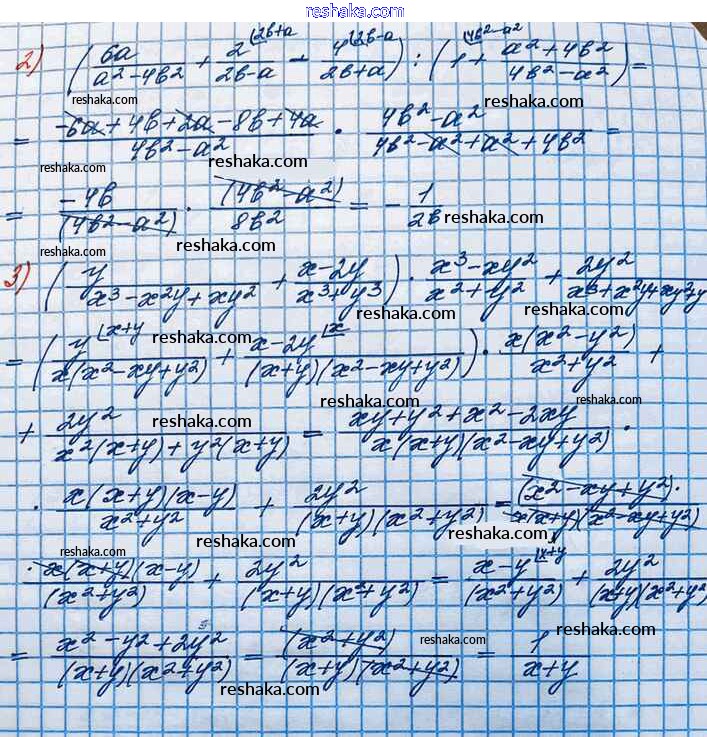 reshaka.com
2) (6a/(a²-4b²) + 2/(2b-a) [2b+a - 4/(2b+a) [2b-a) : (1 [4b²-a² + (a²+4b²)/(4b²-a²)) =
reshaka.com reshaka.com reshaka.com
= (-6a+4b+2a-8b+4a)/(4b²-a²) · (4b²-a²)/(4b²-a²+a²+4b²) =
reshaka.com reshaka.com
= -4b/(4b²-a²) · (4b²-a²)/8b² = - 1/2b
reshaka.com reshaka.com reshaka.com
3) (y/(x³-x²y+xy²) + (x-2y)/(x³+y³)) · (x³-xy²)/(x²+y²) + 2y²/(x³+x²y+xy²+y
reshaka.com reshaka.com reshaka.com
= (y [x+y/(x(x²-xy+y²)) + (x-2y [x)/((x+y)(x²-xy+y²))) · x(x²-y²)/(x²+y²) +
reshaka.com reshaka.com reshaka.com
+ 2y²/(x²(x+y)+y²(x+y)) = (xy+y²+x²-2xy)/(x(x+y)(x²-xy+y²)) ·
reshaka.com reshaka.com reshaka.com
· x(x+y)(x-y)/(x²+y²) + 2y²/((x+y)(x²+y²)) = (x²-xy+y²)·/(x(x+y)(x²-xy+y²))
reshaka.com reshaka.com reshaka.com
· x(x+y)(x-y)/(x²+y²) + 2y²/((x+y)(x²+y²)) = (x-y [x+y)/(x²+y²) + 2y²/((x+y)(x²+y²)
reshaka.com reshaka.com reshaka.com
= (x²-y²+2y²)/((x+y)(x²+y²)) = (x²+y²)/((x+y)(x²+y²)) = 1/(x+y)
reshaka.com reshaka.com reshaka.com
reshaka.com